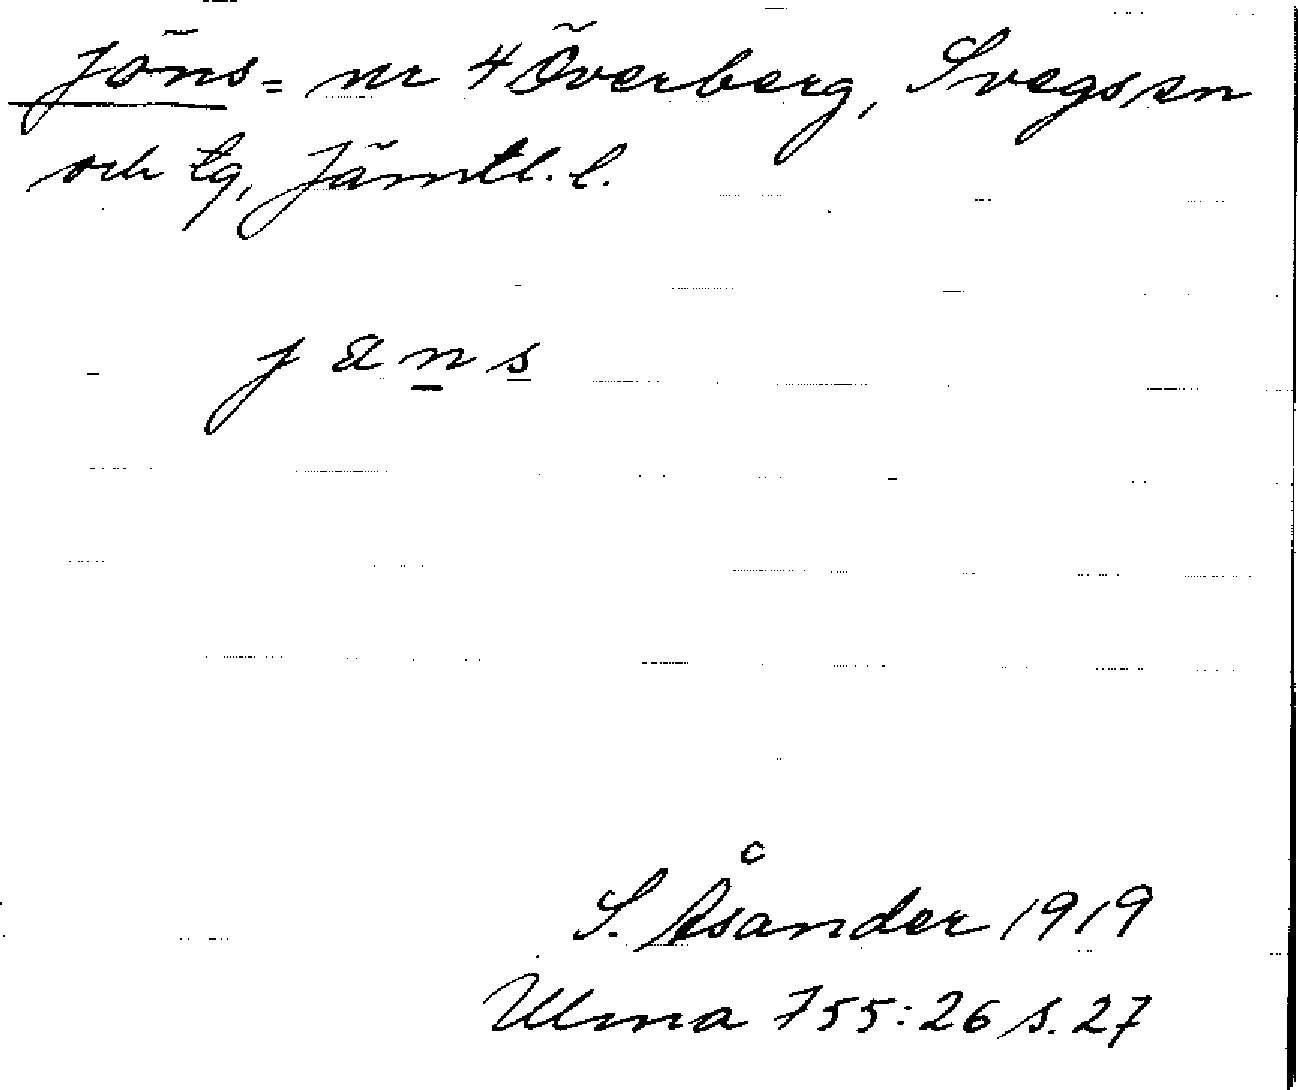 Jöns= nr 4 Överberg, Svegs sn
och tg, Jämtl. l.
j a n s
S. Åsander 1919
Ulma 755:26 s. 27